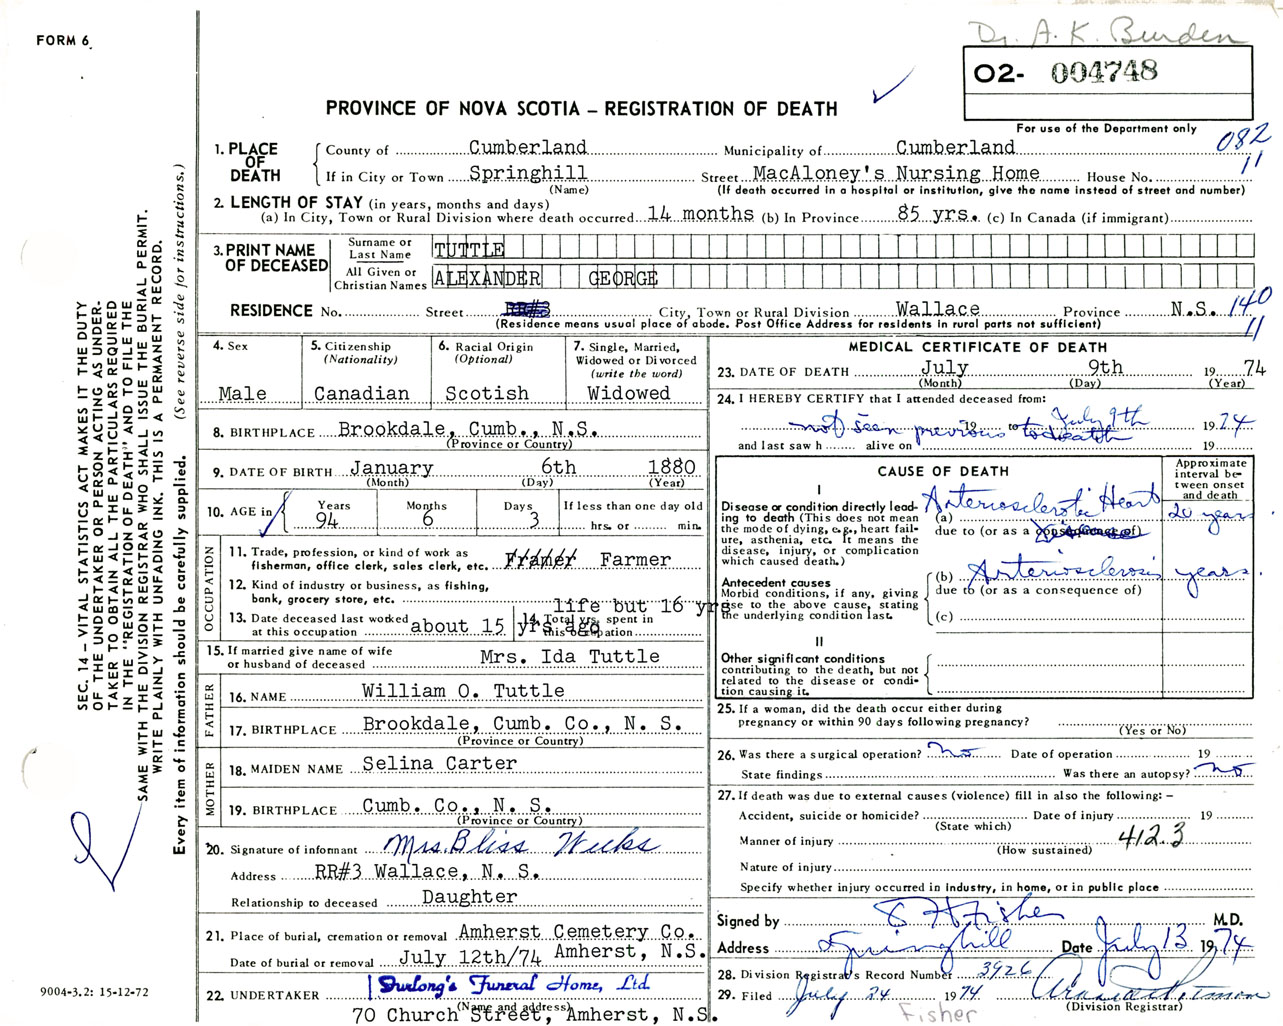 FORM 6
Dr. A. K. Burden
O2- 004748
PROVINCE OF NOVA SCOTIA – REGISTRATION OF DEATH
For use of the Department only
082
11
1. PLACE OF DEATH
County of Cumberland Municipality of Cumberland
If in City or Town Springhill Street MacAloney's Nursing Home House No.
(Name) (If death occurred in a hospital or institution, give the name instead of street and number)
2. LENGTH OF STAY (in years, months and days)
(a) In City, Town or Rural Division where death occurred 14 months (b) In Province 85 yrs. (c) In Canada (if immigrant)
3. PRINT NAME OF DECEASED
Surname or Last Name TUTTLE
All Given or Christian Names ALEXANDER GEORGE
RESIDENCE No. Street RR#3 City, Town or Rural Division Wallace Province N.S.
140
11
(Residence means usual place of abode. Post Office Address for residents in rural parts not sufficient)
4. Sex
Male
5. Citizenship
(Nationality)
Canadian
6. Racial Origin
(Optional)
Scotish
7. Single, Married,
Widowed or Divorced
(write the word)
Widowed
8. BIRTHPLACE Brookdale, Cumb., N.S.
(Province or Country)
9. DATE OF BIRTH January 6th 1880
(Month) (Day) (Year)
10. AGE in
Years Months Days If less than one day old
94 6 3 hrs. or min.
OCCUPATION
11. Trade, profession, or kind of work as
fisherman, office clerk, sales clerk, etc. Framer Farmer
12. Kind of industry or business, as fishing,
bank, grocery store, etc.
life but 16 yrs
13. Date deceased last worked
at this occupation about 15 yrs ago
14. Total yrs. spent in
this occupation
15. If married give name of wife
or husband of deceased Mrs. Ida Tuttle
FATHER
16. NAME William O. Tuttle
17. BIRTHPLACE Brookdale, Cumb. Co., N. S.
(Province or Country)
MOTHER
18. MAIDEN NAME Selina Carter
19. BIRTHPLACE Cumb. Co., N. S.
(Province or Country)
20. Signature of informant Mrs. Bliss Weeks
Address RR#3 Wallace, N. S.
Relationship to deceased Daughter
21. Place of burial, cremation or removal Amherst Cemetery Co.
Amherst, N.S.
Date of burial or removal July 12th/74
22. UNDERTAKER Furlong's Funeral Home, Ltd.
(Name and address)
70 Church Street, Amherst, N.S.
MEDICAL CERTIFICATE OF DEATH
23. DATE OF DEATH July 9th 19 74
(Month) (Day) (Year)
24. I HEREBY CERTIFY that I attended deceased from:
July 9th
not seen previous 19 to to death 19 74
and last saw h alive on 19
CAUSE OF DEATH
Approximate
interval be-
tween onset
and death
I
Disease or condition directly lead-
ing to death (This does not mean
the mode of dying, e.g., heart fail-
ure, asthenia, etc. It means the
disease, injury, or complication
which caused death.)
(a) Arteriosclerotic Heart 20 years
due to (or as a consequence of)
Antecedent causes
Morbid conditions, if any, giving
rise to the above cause, stating
the underlying condition last.
(b) Arteriosclerosis years.
due to (or as a consequence of)
(c)
II
Other significant conditions
contributing to the death, but not
related to the disease or condi-
tion causing it.
25. If a woman, did the death occur either during
pregnancy or within 90 days following pregnancy?
(Yes or No)
26. Was there a surgical operation? No Date of operation 19
State findings Was there an autopsy? No
27. If death was due to external causes (violence) fill in also the following: –
Accident, suicide or homicide? Date of injury 19
(State which)
Manner of injury 412.3
(How sustained)
Nature of injury
Specify whether injury occurred in industry, in home, or in public place
Signed by Fisher M.D.
Address Springhill Date July 13 1974
28. Division Registrar's Record Number 3926
29. Filed July 24 1974
(Division Registrar)
Fisher
SEC. 14 – VITAL STATISTICS ACT MAKES IT THE DUTY
OF THE UNDERTAKER OR PERSON ACTING AS UNDER-
TAKER TO OBTAIN ALL THE PARTICULARS REQUIRED
IN THE "REGISTRATION OF DEATH" AND TO FILE THE
SAME WITH THE DIVISION REGISTRAR WHO SHALL ISSUE THE BURIAL PERMIT.
WRITE PLAINLY WITH UNFADING INK. THIS IS A PERMANENT RECORD.
Every item of information should be carefully supplied. (See reverse side for instructions.)
9004-3.2: 15-12-72